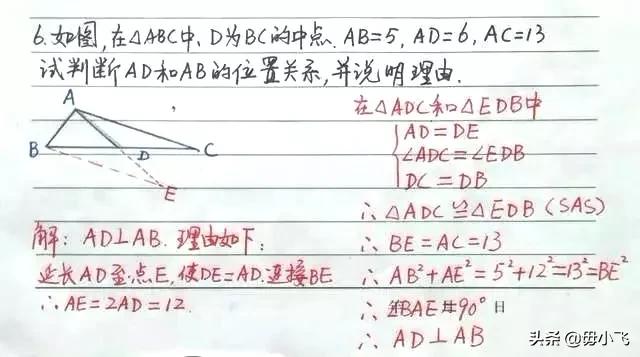 6.如图,在△ABC中,D为BC的中点.AB=5,AD=6,AC=13
试判断AD和AB的位置关系,并说明理由.
A
B
D
C
E
解:AD⊥AB.理由如下:
延长AD至点E,使DE=AD.连接BE
∴AE=2AD=12.
在△ADC和△EDB中
AD=DE
∠ADC=∠EDB
DC=DB
∴△ADC≌△EDB(SAS)
∴BE=AC=13
∴AB²+AE²=5²+12²=13²=BE²
∴∠BAE=90°
∴AD⊥AB
头条@毋小飞